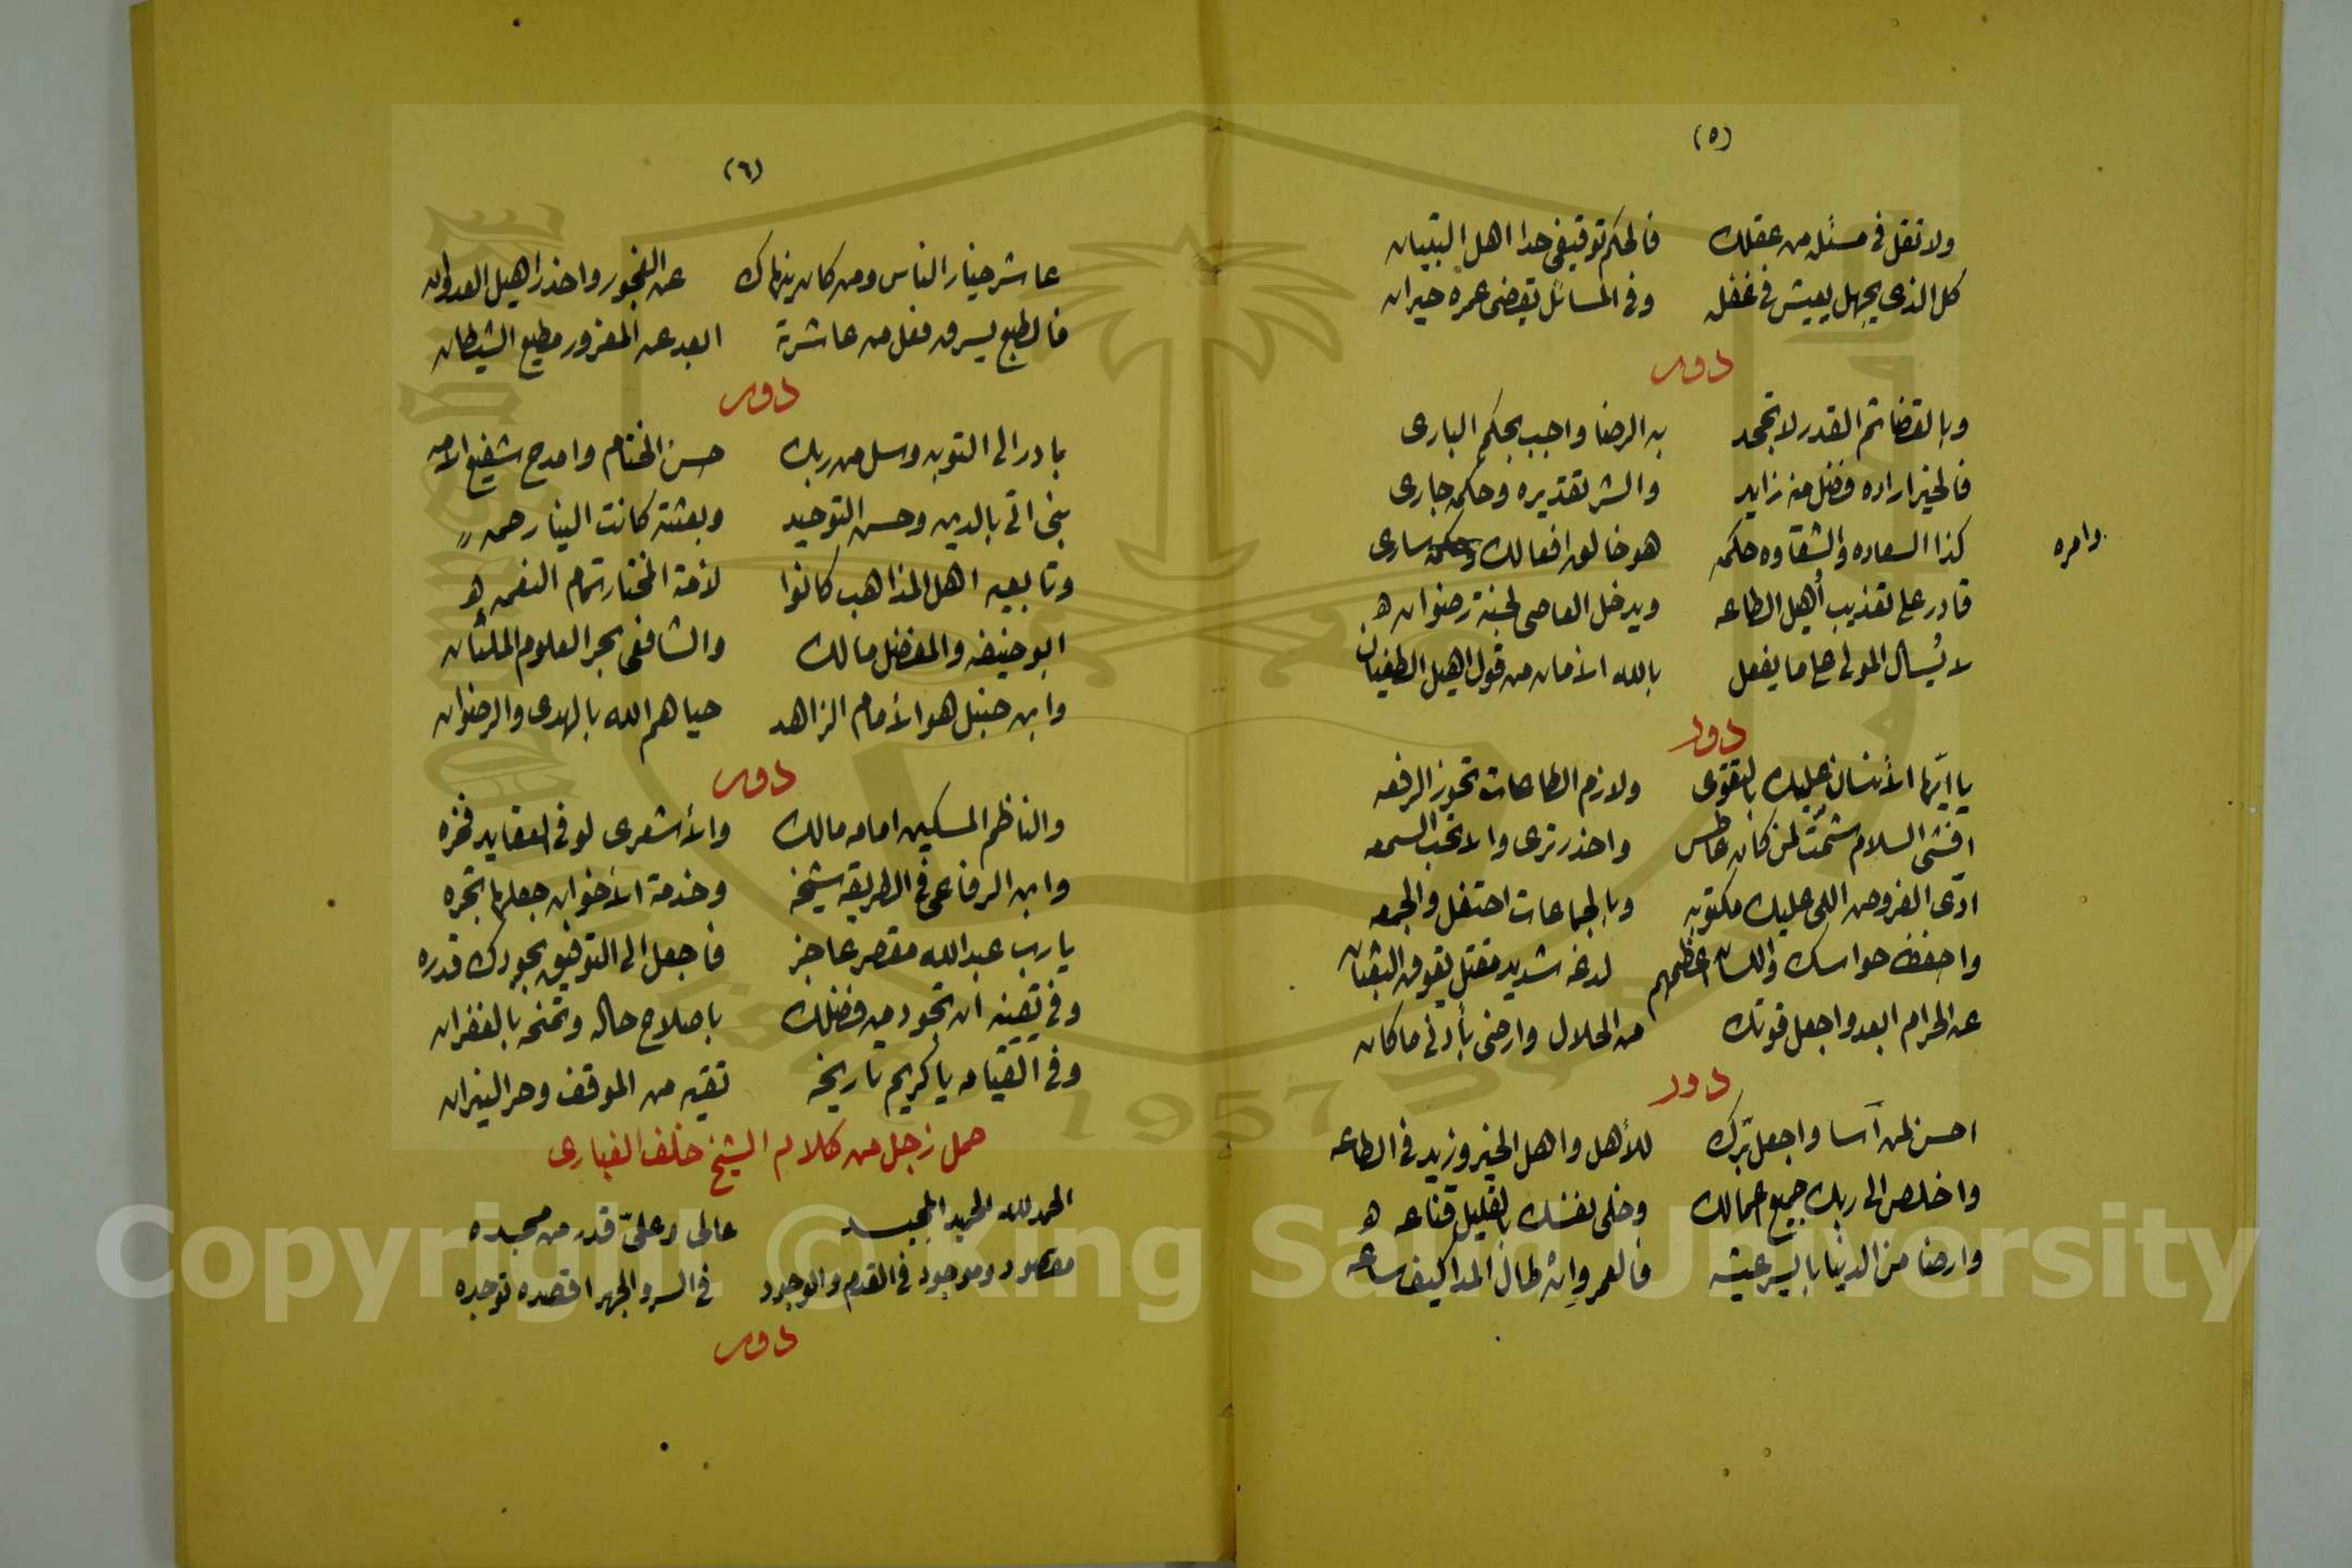 (٥)
ولا تقل فى مسئله من عقلك فالحكم توقيفى حدا اهل التبيان
كل الذى يجهل يعيش فى غفله وفى المسائل يقضى عمره حيران
دور
وبالقضا ثم القدر لا تجحد به الرضا واجب بحكم البارى
فالخير اراده فضل منه زايد والشر تقديره وحكمه جارى
كذا السعاده والشقاوه حكمه هو خالق افعالك وحكمه سارى
وامره
قادر على تعذيب أهيل الطاعه ويدخل العاصى لجنة رضوان
لا يُسأل المولى على ما يفعل بالله الأمان من قول اهيل الطغيان
دور
يا ايّها الأنسان عليك بالتقوى ولازم الطاعات تحوز الرفعه
افشى السلام شمّت لمن كان عاطس واحذر ترى والا تحب السمعه
ادّى الفروض اللى عليك مكتوبه وبالجماعات احتفل والجمعه
واحفظ حواسك واللسان اعظمهم لدغه شديد مقتل يفوق الثعبان
عن الحرام ابعد واجعل قوتك من الحلال وارضى بأدنى ما كان
دور
احسن لمن آسا واجعل برّك للأهل واهل الخير وزيد فى الطاعه
واخلص الى ربك جميع اعمالك وخلى نفسك بالقليل قناعه
وارضا من الدنيا بايسر عيشه فالعمر وان طال المدا كيف ساعه
(٦)
عاشر خيار الناس ومن كان ينهاك عن الفجور واحذر اهيل العدوان
فالطبع يسرق فعل من عاشرته ابعد عن المغرور مطيع الشيطان
دور
بادر الى التوبه وسل من ربك حسن الختام وامدح شفيع الامه
نبى اتى بالدين وحسن التوحيد وبعثته كانت الينا رحمه
وتابعيه اهل المذاهب كانوا لأمة المختار تمام النعمه
ابو حنيفه والمفضل مالك والشافعى بحر العلوم الملئان
وابن حنبل هو الأمام الزاهد حياهم الله بالهدى والرضوان
دور
والناظم المسكين امامه مالك والأشعرى لو فى العقايد فخره
وابن الرفاعى فى الطريقه شيخه وخدمة الأخوان جعلها تجره
يا رب عبد الله مقصر عاجز فاجعل الى التوفيق بجودك قدره
وفى يقينه ان تجود من فضلك باصلاح حاله وتمنحه بالغفران
وفى القيامه يا كريم تاريخه تقيه من الموقف وحر النيران
حمل زجل من كلام الشيخ خلف الغبارى
الحمد لله الحميد المجيد عالى وعلىّ قدر من مجده
مقصود وموجود فى القدم والوجود فى السر والجهر اقصده توجده
دور
1957
Copyright © King Saud University